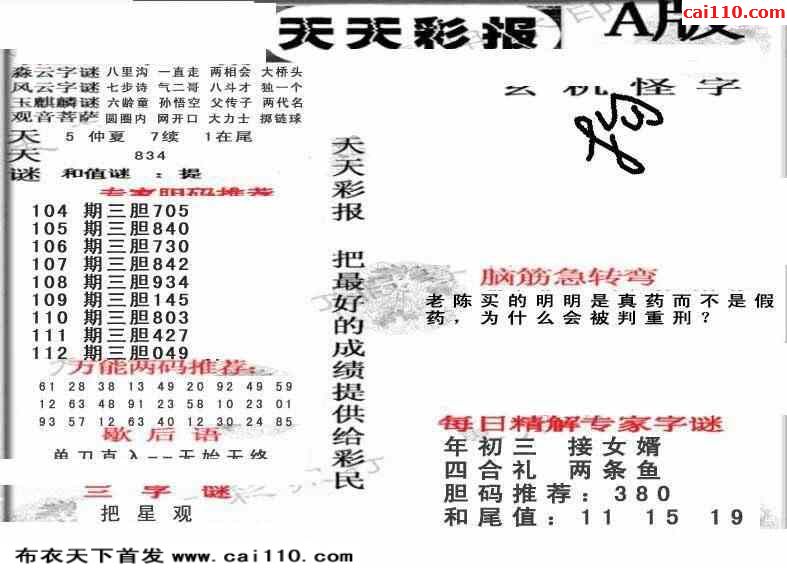 cai110.com
天天彩报 A版
森云字谜 八里沟 一直走 两相会 大桥头
风云字谜 七步诗 气二哥 八斗才 独一个
玉麒麟谜 六龄童 孙悟空 父传子 两代名
观音菩萨 圆圈内 网开口 大力士 掷链球
天 5 仲夏 7续 1在尾
天 834
谜 和值谜 : 提
专家胆码推荐
104 期三胆705
105 期三胆840
106 期三胆730
107 期三胆842
108 期三胆934
109 期三胆145
110 期三胆803
111 期三胆427
112 期三胆049
万能两码推荐:
61 28 38 13 49 20 92 49 59
12 63 48 91 23 58 10 23 01
93 57 12 63 40 12 30 24 85
歇后语
单刀直入--无始无终
三字谜
把星观
天天彩报 把最好的成绩提供给彩民
玄机怪字
脑筋急转弯
老陈买的明明是真药而不是假
药，为什么会被判重刑？
每日精解专家字谜
年初三 接女婿
四合礼 两条鱼
胆码推荐: 380
和尾值: 11 15 19
布衣天下首发 www.cai110.com